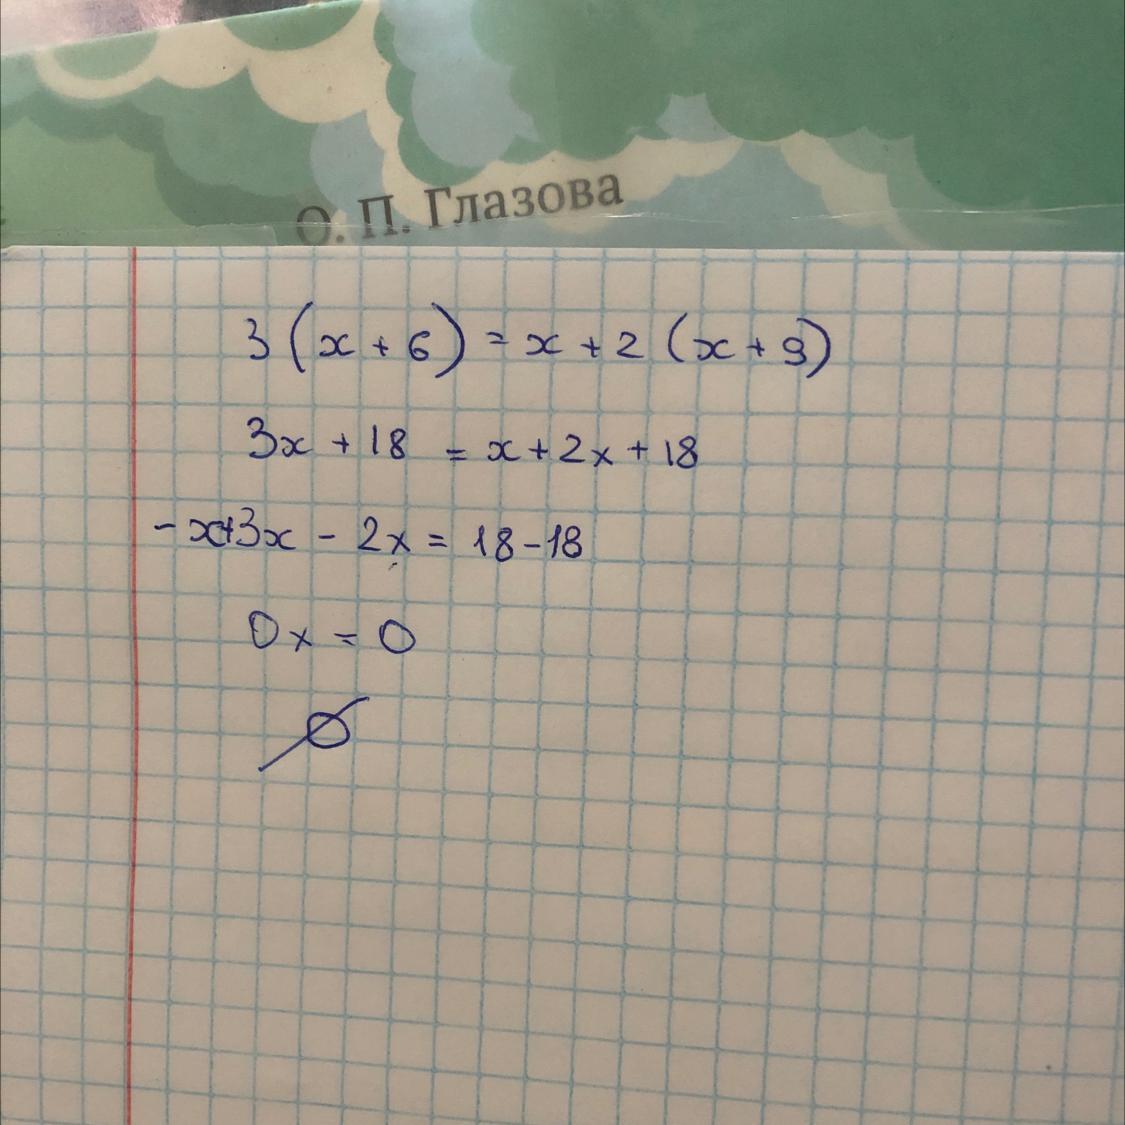 О. П. Глазова
3 (x + 6) = x + 2 (x + 9)
3x + 18 = x + 2x + 18
- x+3x - 2x = 18 - 18
0x = 0
∅